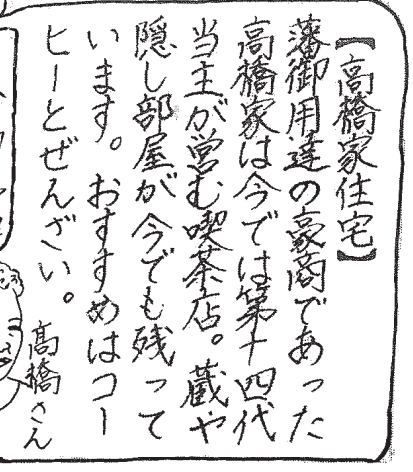 【高橋家住宅】
藩御用達の豪商であった
高橋家は今では第十四代
当主が営む喫茶店。蔵や
隠し部屋が今でも残って
います。おすすめはコー
ヒーとぜんざい。
高橋さん